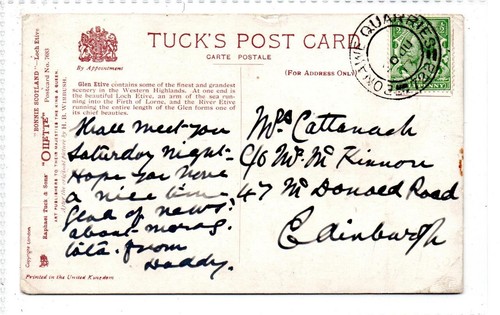 TUCK'S POST CARD
CARTE POSTALE
By Appointment
(FOR ADDRESS ONLY)
Glen Etive contains some of the finest and grandest
scenery in the Western Highlands. At one end is
the beautiful Loch Etive, an arm of the sea run-
ning into the Firth of Lorne, and the River Etive
running the entire length of the Glen forms one of
its chief beauties.
Shall meet you
Saturday night-
Hope you have
a nice time
Glad of news
about morag.
tata. from
Daddy.
Mrs Cattanach
C/o Mr Mc Kinnon
47 Mc Donald Road
Edinburgh
"BONNIE SCOTLAND" Loch Etive
Postcard No.
Raphael Tuck & Sons' "OILETTE"
ART PUBLISHERS TO THEIR MAJESTIES THE KING & QUEEN.
Copyright London.
Printed in the United Kingdom
QUARRIER'S